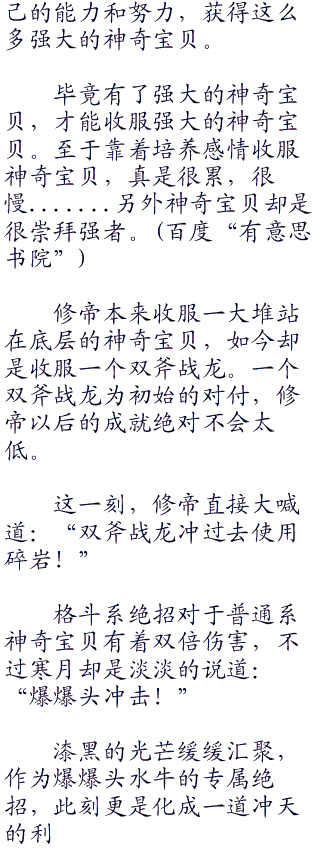 己的能力和努力，获得这么
多强大的神奇宝贝。
毕竟有了强大的神奇宝
贝，才能收服强大的神奇宝
贝。至于靠着培养感情收服
神奇宝贝，真是很累，很
慢.......另外神奇宝贝却是
很崇拜强者。(百度“有意思
书院”)
修帝本来收服一大堆站
在底层的神奇宝贝，如今却
是收服一个双斧战龙。一个
双斧战龙为初始的对付，修
帝以后的成就绝对不会太
低。
这一刻，修帝直接大喊
道：“双斧战龙冲过去使用
碎岩！”
格斗系绝招对于普通系
神奇宝贝有着双倍伤害，不
过寒月却是淡淡的说道：
“爆爆头冲击！”
漆黑的光芒缓缓汇聚，
作为爆爆头水牛的专属绝
招，此刻更是化成一道冲天
的利